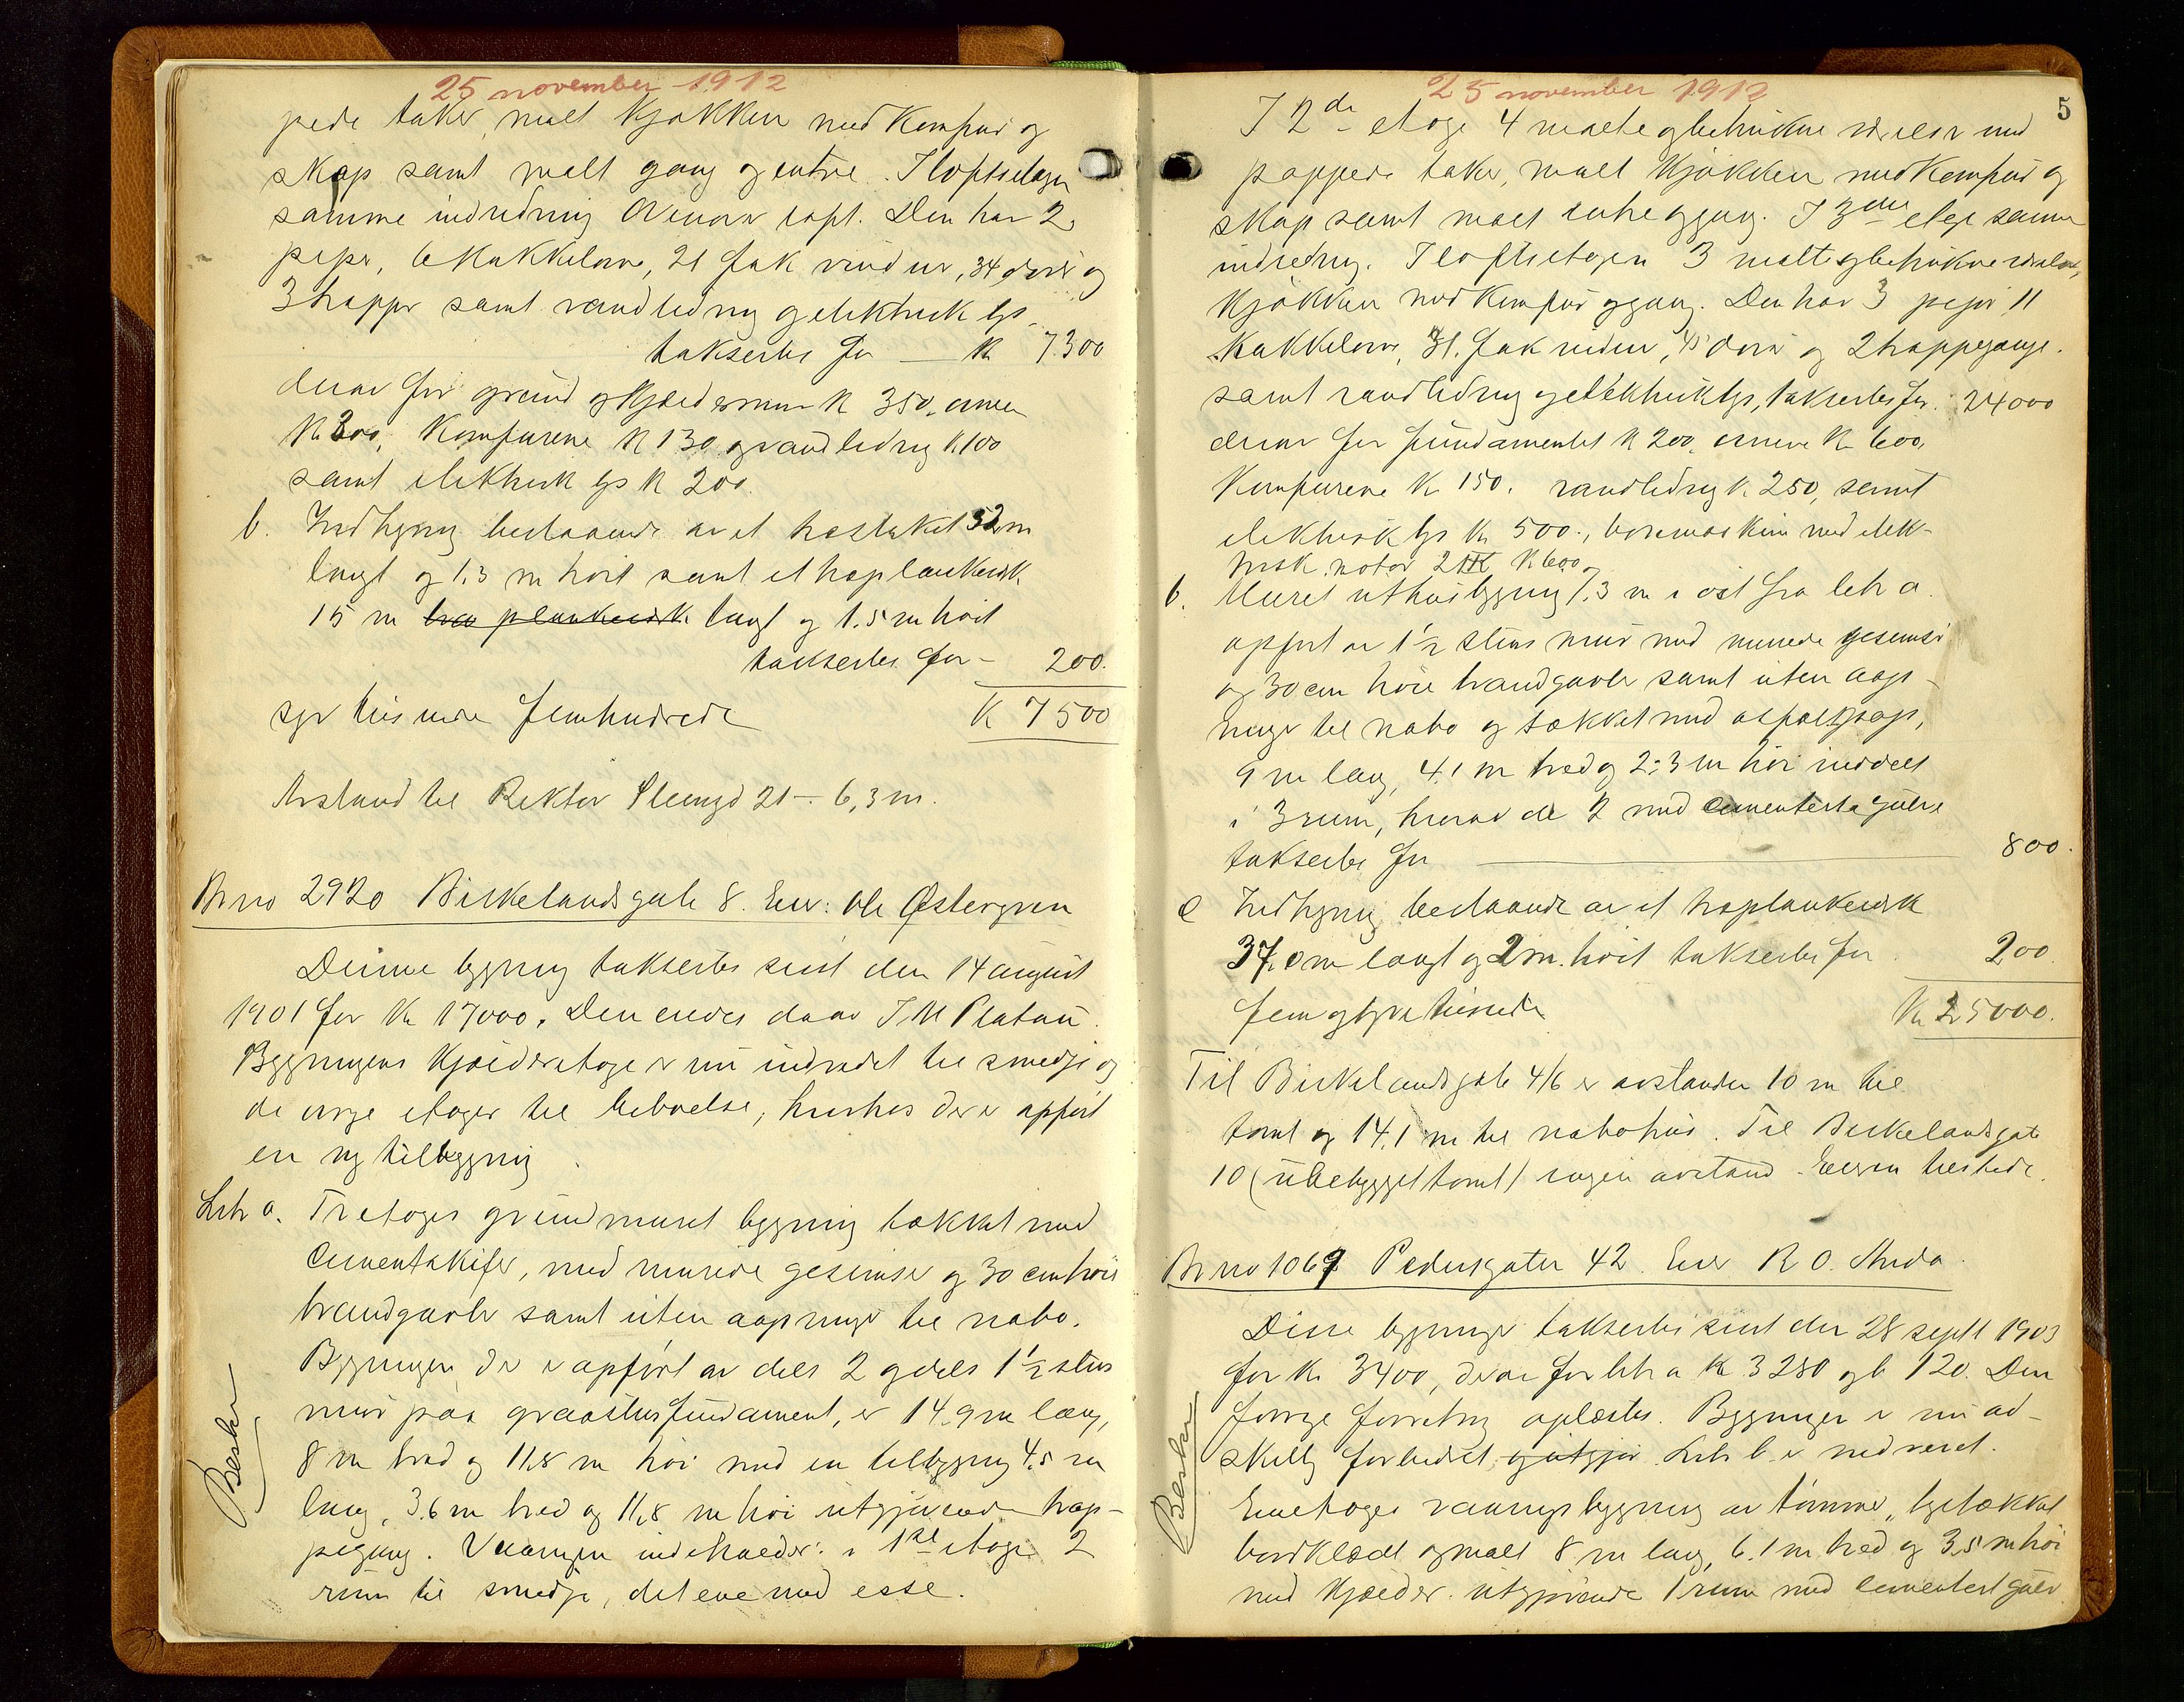 25 november 1912
pede taker, malt kjøkken med komfur og
skap samt malt gang og entre. I loftsetagen
samme indredning ovenover trapt. Den har 2
piper, 6 kakkelovne, 21 fak vinduer, 34 dører og
3 trapper samt vandledning og elektrisk lys
takseres for — K 7300
derav for grund og kjældermur K 350, ovnene
K 300, komfurene K 130 og vandledning K 100
samt elektrisk lys K 200.
b. Indhegning bestaaende av et træstaket 52 m
langt og 1.3 m høit samt et træplankeverk
15 m træ plankeverk langt og 1.5 m høit
takseres for — 200.
syv tusinde femhundrede K 7500
Avstand til Rektor Steensgd 21 — 6,3 m.
Br no 2920 Birkelandsgate 8. Eier: Ole Østergren
Denne bygning takseertes sist den 14 august
1901 for Kr 17000. Den eiedes da av I. M. Platou.
Bygningens kjælderetage er nu indredet til smedje og
de øvrige etager til beboelse, hvorhos der er opført
en ny tilbygning.
Litr a. Treetages grundmuret bygning tækket med
cementskifer, med murede gesimser og 30 cm høie
brandgavler samt uten aapninger til nabo.
Bygningen, der er opført av dels 2 og dels 1½ stens
mur paa graastensfundament, er 14.9 m lang,
8 m bred og 11.8 m høi med en tilbygning 4.5 m
lang, 3.6 m bred og 11.8 m høi utgjørende trap-
pegang. Vaaningen indeholder: i 1ste etage 2
rum til smedje, det ene med esse.
Besku
25 november 1912
5
I 2de etage 4 malte og betrukne værelser med
pappede taker, malt kjøkken med komfur og
skap samt malt entre og gang. I 3die etage samme
indredning. I loftsetagen 3 malte og betrukne værelser,
kjøkken med komfur og gang. Den har 3 piper 11
kakkelovne, 31 fak vinduer, 45 dører og 2 trappegange.
samt vandledning og elektrisk lys, takseres for. 24000
derav for fundamentet K 200, ovnene K 600,
komfurene Kr 150. vandledning K 250, samt
elektrisk lys Kr 500., boremaskin med elek-
trisk motor 2 HK K 600.
b. Muret uthusbygning 1.3 m i øst fra litr a.
opført av 1½ stens mur med murede gesimser
og 30 cm høie brandgavler samt uten aap-
ninger til nabo og tækket med asfaltpap,
9 m lang, 4.1 m bred og 2.3 m høi inddelt
i 3 rum, hvorav de 2 med cementerte gulve
takseres for — 800.
c Indhegning bestaaende av et træplankeverk
37.0 m langt og 2 m. høit takseres for 200.
femogtyve tusinde Kr 25000.
Til Birkelandsgate 4/6 er avstanden 10 m til
tomt og 14.1 m til nabohus. Til Birkelandsgate
10 (ubebygget tomt) ingen avstand. Eieren tilstede.
Br no 1069 Pedersgaten 42. Eier R. O. Meda.
Disse bygninger takseertes sist den 28 septb 1903
for Kr 3400, derav for litr a Kr 3280 og b 120. Den
forrige forretning oplæstes. Bygningen er nu ad-
skillig forbedret, og utgjør Litr b er nedrevet.
Eenetages vaaningsbygning av tømmer, tegltækket
bordklædt og malt 8 m lang, 6.1 m bred og 3.5 m høi
med kjælder utgjørende 1 rum med cementert gulv
Besku